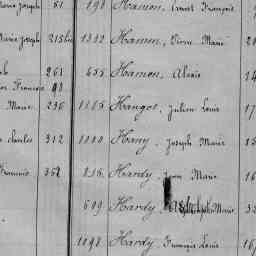 Marie Joseph 81 198 Hamon, Ernest François
Marie Joseph 215 bis 1332 Hamon, Pierre Marie 20
261 655 Hamon, Alexis 14
François 90
Marie 236 1165 Hangot, Julien Louis 17
Charles 312 1000 Hany, Joseph Marie 15
Francois 352 816 Hardy, Jean Marie 16
609 Hardy, Marie 32
1098 Hardy, François Louis 16